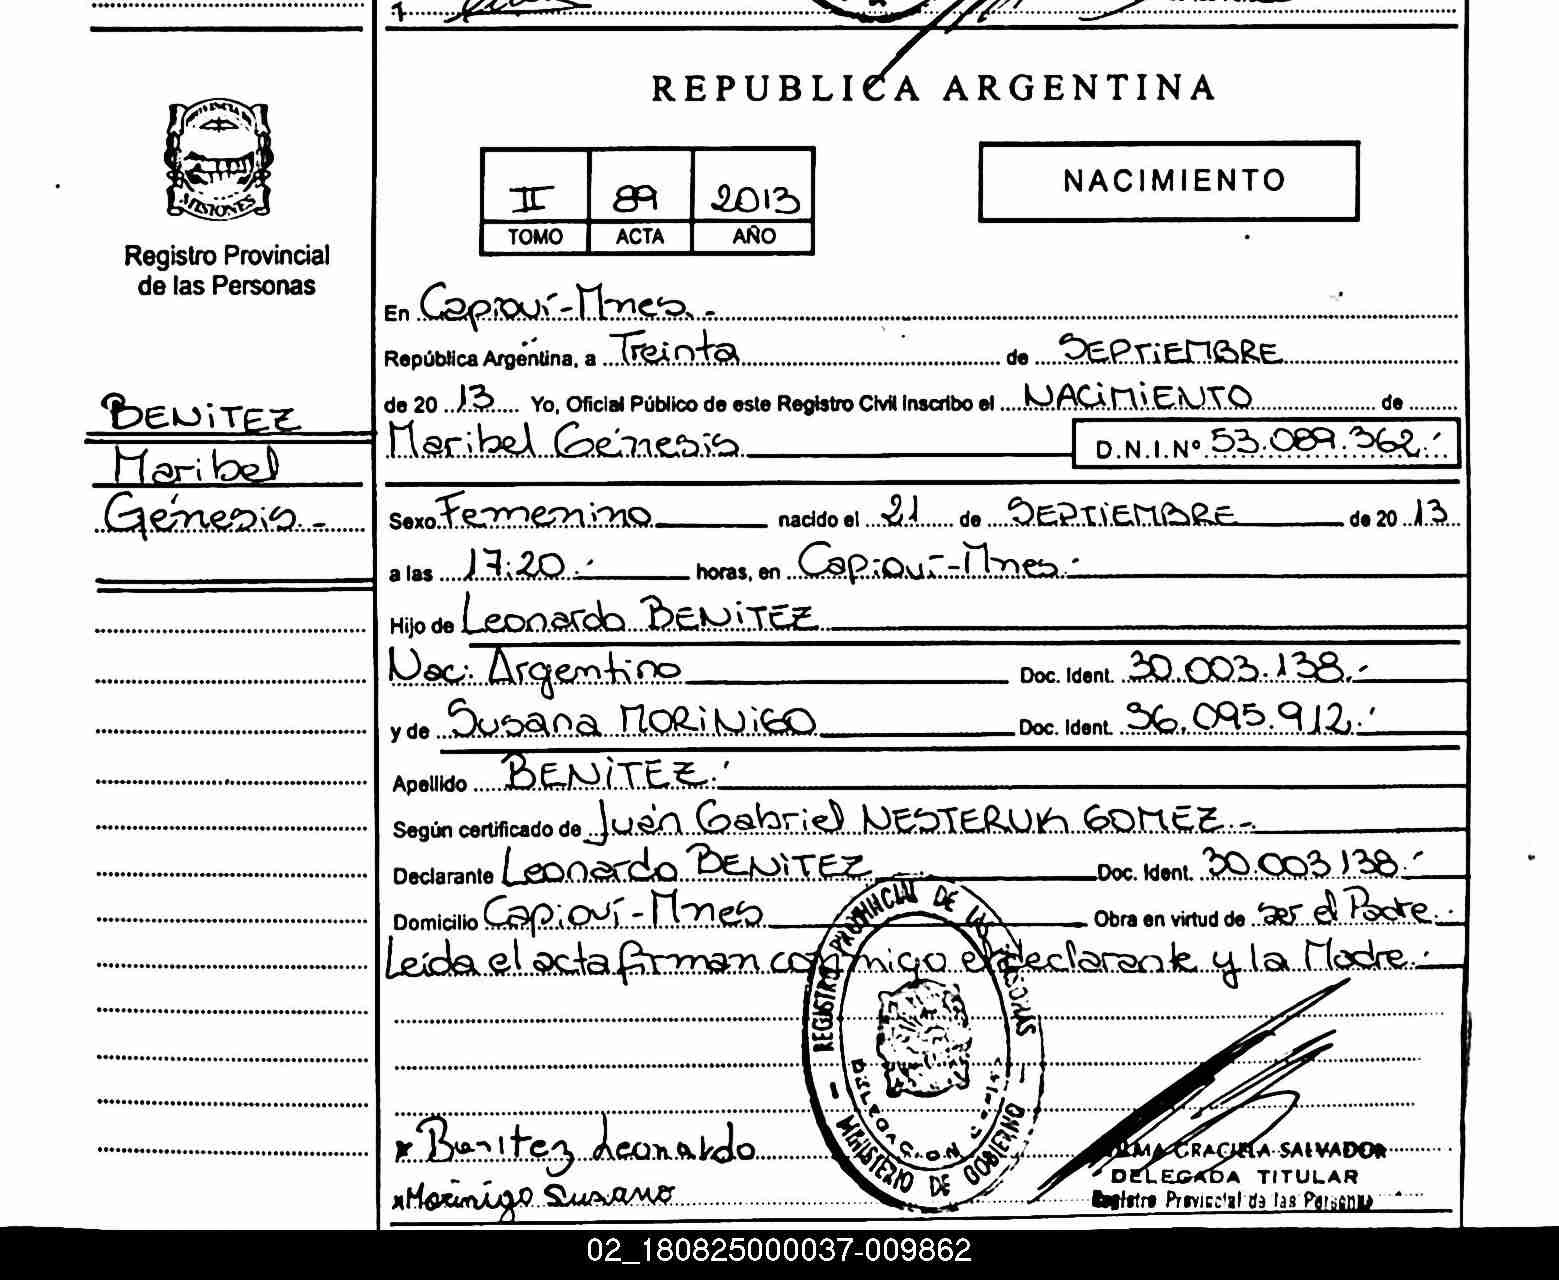 REPUBLICA ARGENTINA
MISIONES
Registro Provincial
de las Personas
II 89 2013
TOMO ACTA AÑO
NACIMIENTO
BENITEZ
Maribel
Génesis.-
En Capioví-Mnes.-
República Argentina, a Treinta de SEPTIEMBRE
de 20 13 Yo, Oficial Público de este Registro Civil inscribo el NACIMIENTO de
Maribel Génesis D.N.I.Nº 53.089.362.-
Sexo Femenino nacido el 21 de SEPTIEMBRE de 20 13
a las 17:20.- horas, en Capioví-Mnes.-
Hijo de Leonardo BENITEZ
Nac: Argentino Doc. Ident. 30.003.138.-
y de Susana MORINIGO Doc. Ident. 36.095.912.-
Apellido BENITEZ.-
Según certificado de Juan Gabriel NESTERUK GOMEZ.-
Declarante Leonardo BENITEZ Doc. Ident. 30.003.138.-
Domicilio Capioví-Mnes Obra en virtud de ser el Padre.-
Leída el acta firman conmigo el declarante y la Madre.-
REGISTRO PROVINCIAL DE LAS PERSONAS
DELEGACION
MINISTERIO DE GOBIERNO
x Benitez Leonardo
x Morinigo Susana
GRACIELA SALVADOR
DELEGADA TITULAR
Registro Provincial de las Personas
02_180825000037-009862